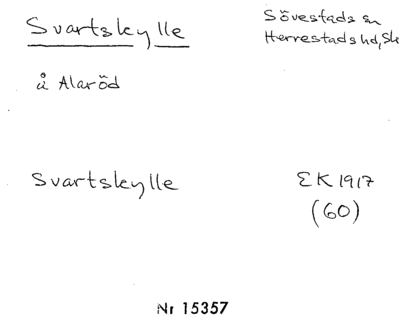 Svartskylle
Sövestads sn
Herrestads hd, Sk
å Alaröd
Svartskylle
EK 1917
(60)
Nr 15357